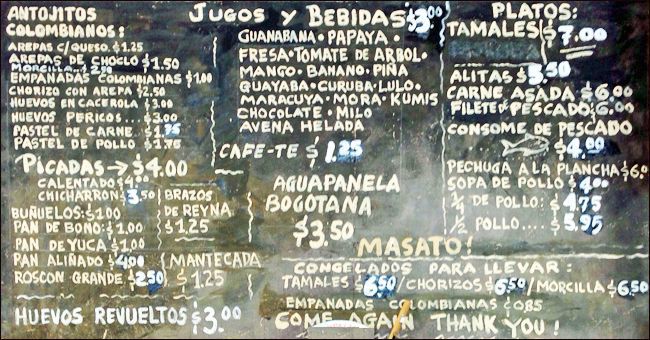 ANTOJITOS
COLOMBIANOS:
AREPAS C/QUESO. $1.25
AREPAS DE CHOCLO $1.50
MORCILLA $2.50
EMPANADAS COLOMBIANAS $1.00
CHORIZO CON AREPA $2.50
HUEVOS EN CACEROLA $3.00
HUEVOS PERICOS... $3.00
PASTEL DE CARNE. $1.75
PASTEL DE POLLO. $1.75
PICADAS → $4.00
CALENTADO $4.00
CHICHARRON $3.50
BUÑUELOS: $1.00
PAN DE BONO: $1.00
PAN DE YUCA $1.00
PAN ALIÑADO $4.00
ROSCON GRANDE $2.50
BRAZOS
DE REYNA
$1.25
MANTECADA
$1.25
HUEVOS REVUELTOS $3.00
JUGOS Y BEBIDAS $3.00
GUANABANA · PAPAYA ·
FRESA · TOMATE DE ARBOL ·
MANGO · BANANO · PIÑA
GUAYABA · CURUBA · LULO ·
MARACUYA · MORA · KUMIS
CHOCOLATE · MILO
AVENA HELADA
CAFE-TE $1.25
AGUAPANELA
BOGOTANA
$3.50
MASATO!
PLATOS:
TAMALES $7.00
ALITAS $5.50
CARNE ASADA $6.00
FILETE PESCADO $6.00
CONSOME DE PESCADO
$4.00
PECHUGA A LA PLANCHA $6.0
SOPA DE POLLO $4.00
1/4 DE POLLO: $4.75
1/2 POLLO.... $5.95
CONGELADOS PARA LLEVAR:
TAMALES $6.50 / CHORIZOS $6.50 / MORCILLA $6.50
EMPANADAS COLOMBIANAS 085
COME AGAIN THANK YOU!